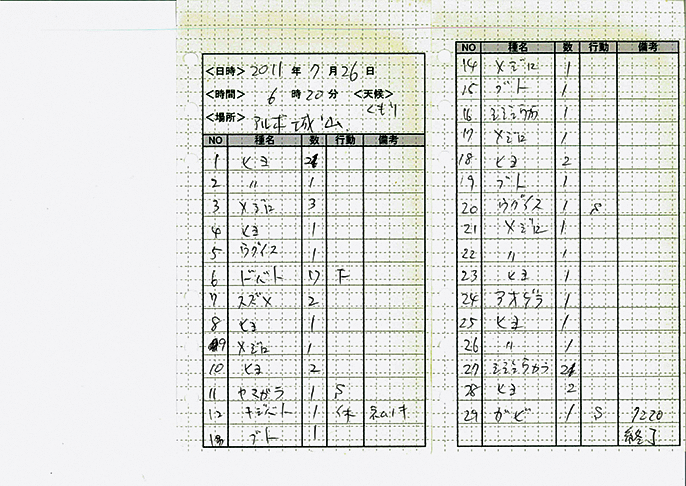 <日時> 2011 年 7 月 26 日
<時間> 6 時 20 分 <天候>
くもり
<場所> 城山
NO 種名 数 行動 備考
1 ヒヨ
2 〃 1
3 メジロ 3
4 ヒヨ 1
5 ウグイス 1
6 ドバト 7 F
7 スズメ 2
8 ヒヨ 1
9 メジロ 1
10 ヒヨ 2
11 ヤマガラ 1 S
12 キジバト 1 休
13 ブト 1
NO 種名 数 行動 備考
14 メジロ 1
15 ブト 1
16 シジュウカラ 1
17 メジロ 1
18 ヒヨ 2
19 ブト 1
20 ウグイス 1 S
21 メジロ 1
22 〃 1
23 ヒヨ 1
24 アオゲラ 1
25 ヒヨ 1
26 〃 1
27 シジュウカラ
28 ヒヨ 2
29 ガビ 1 S 7220
終了